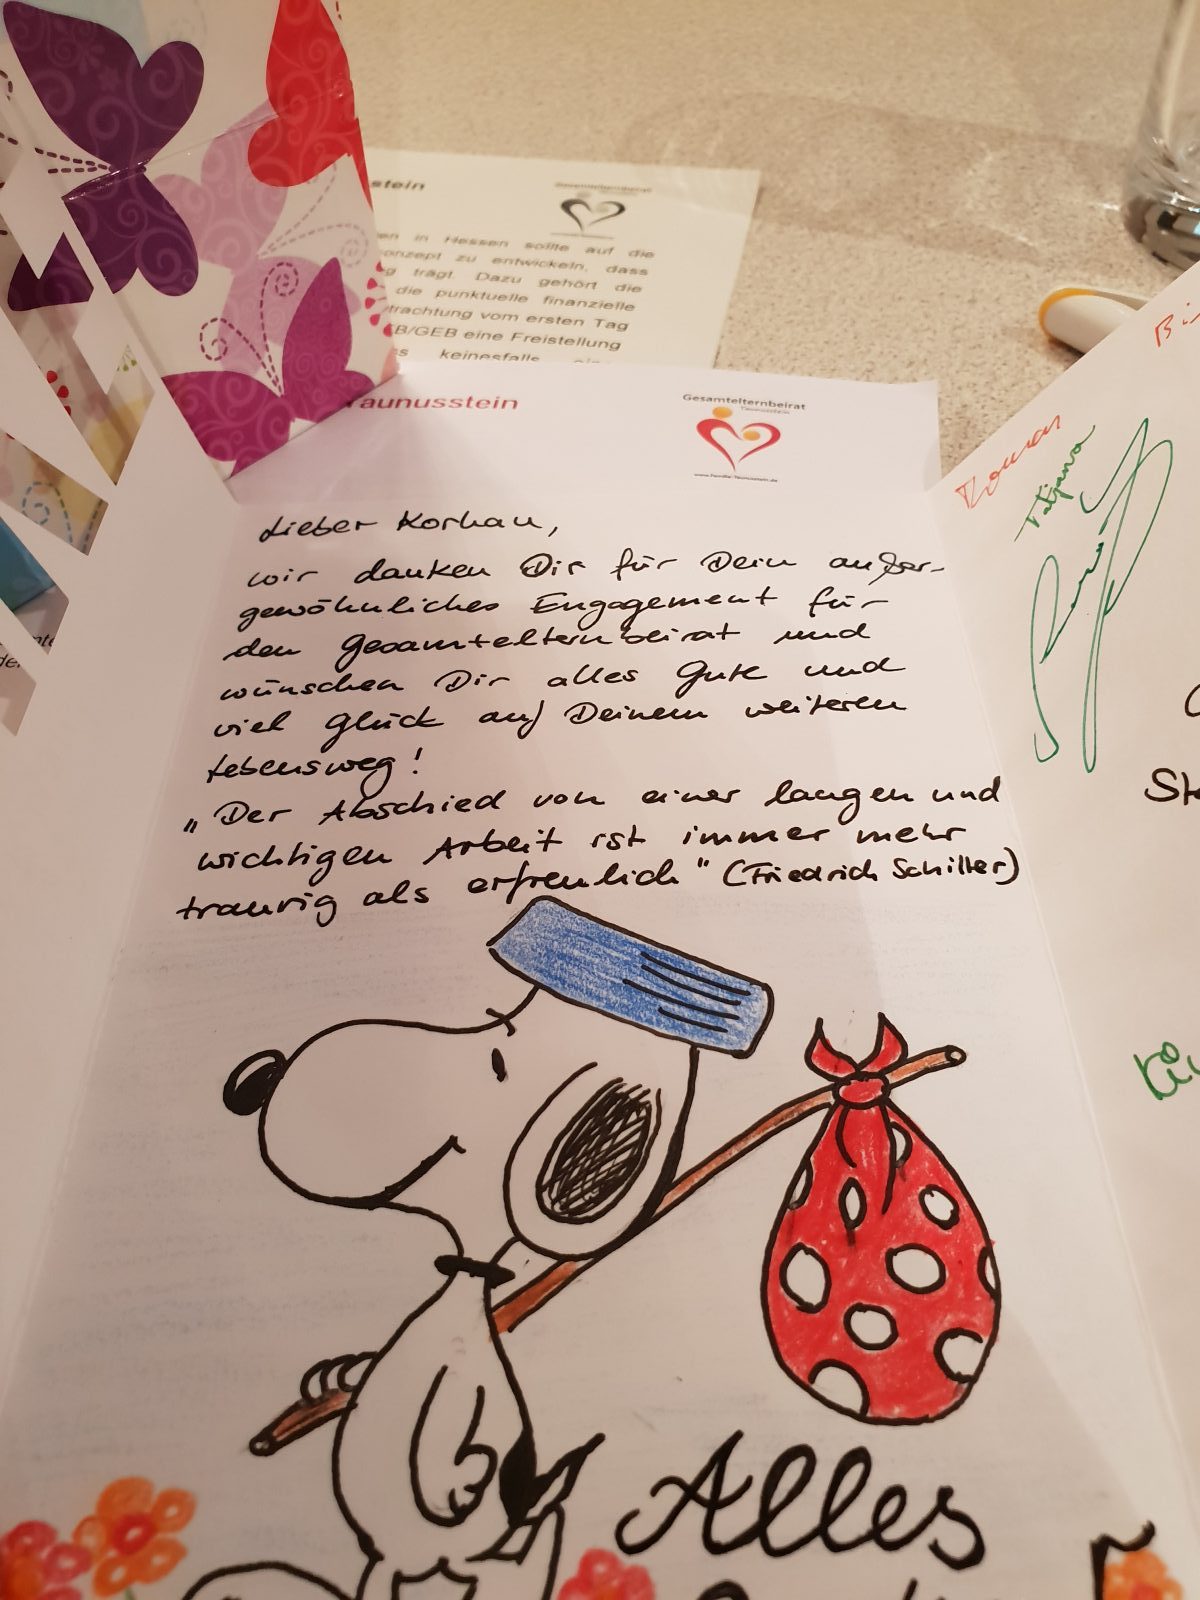 stein
Gesamtelternbeirat
en in Hessen sollte auf die
onzept zu entwickeln, dass
g trägt. Dazu gehört die
die punktuelle finanzielle
trachtung vom ersten Tag
EB/GEB eine Freistellung
s keinesfalls
Taunusstein
Gesamtelternbeirat
Taunusstein
www.Familie-Taunusstein.de
Lieber Korhan,
wir danken Dir für Dein außer-
gewöhnliches Engagement für
den Gesamtelternbeirat und
wünschen Dir alles Gute und
viel Glück auf Deinem weiteren
Lebensweg!
„Der Abschied von einer langen und
wichtigen Arbeit ist immer mehr
traurig als erfreulich" (Friedrich Schiller)
Alles
Roman
Tatjana
Bi
Ste